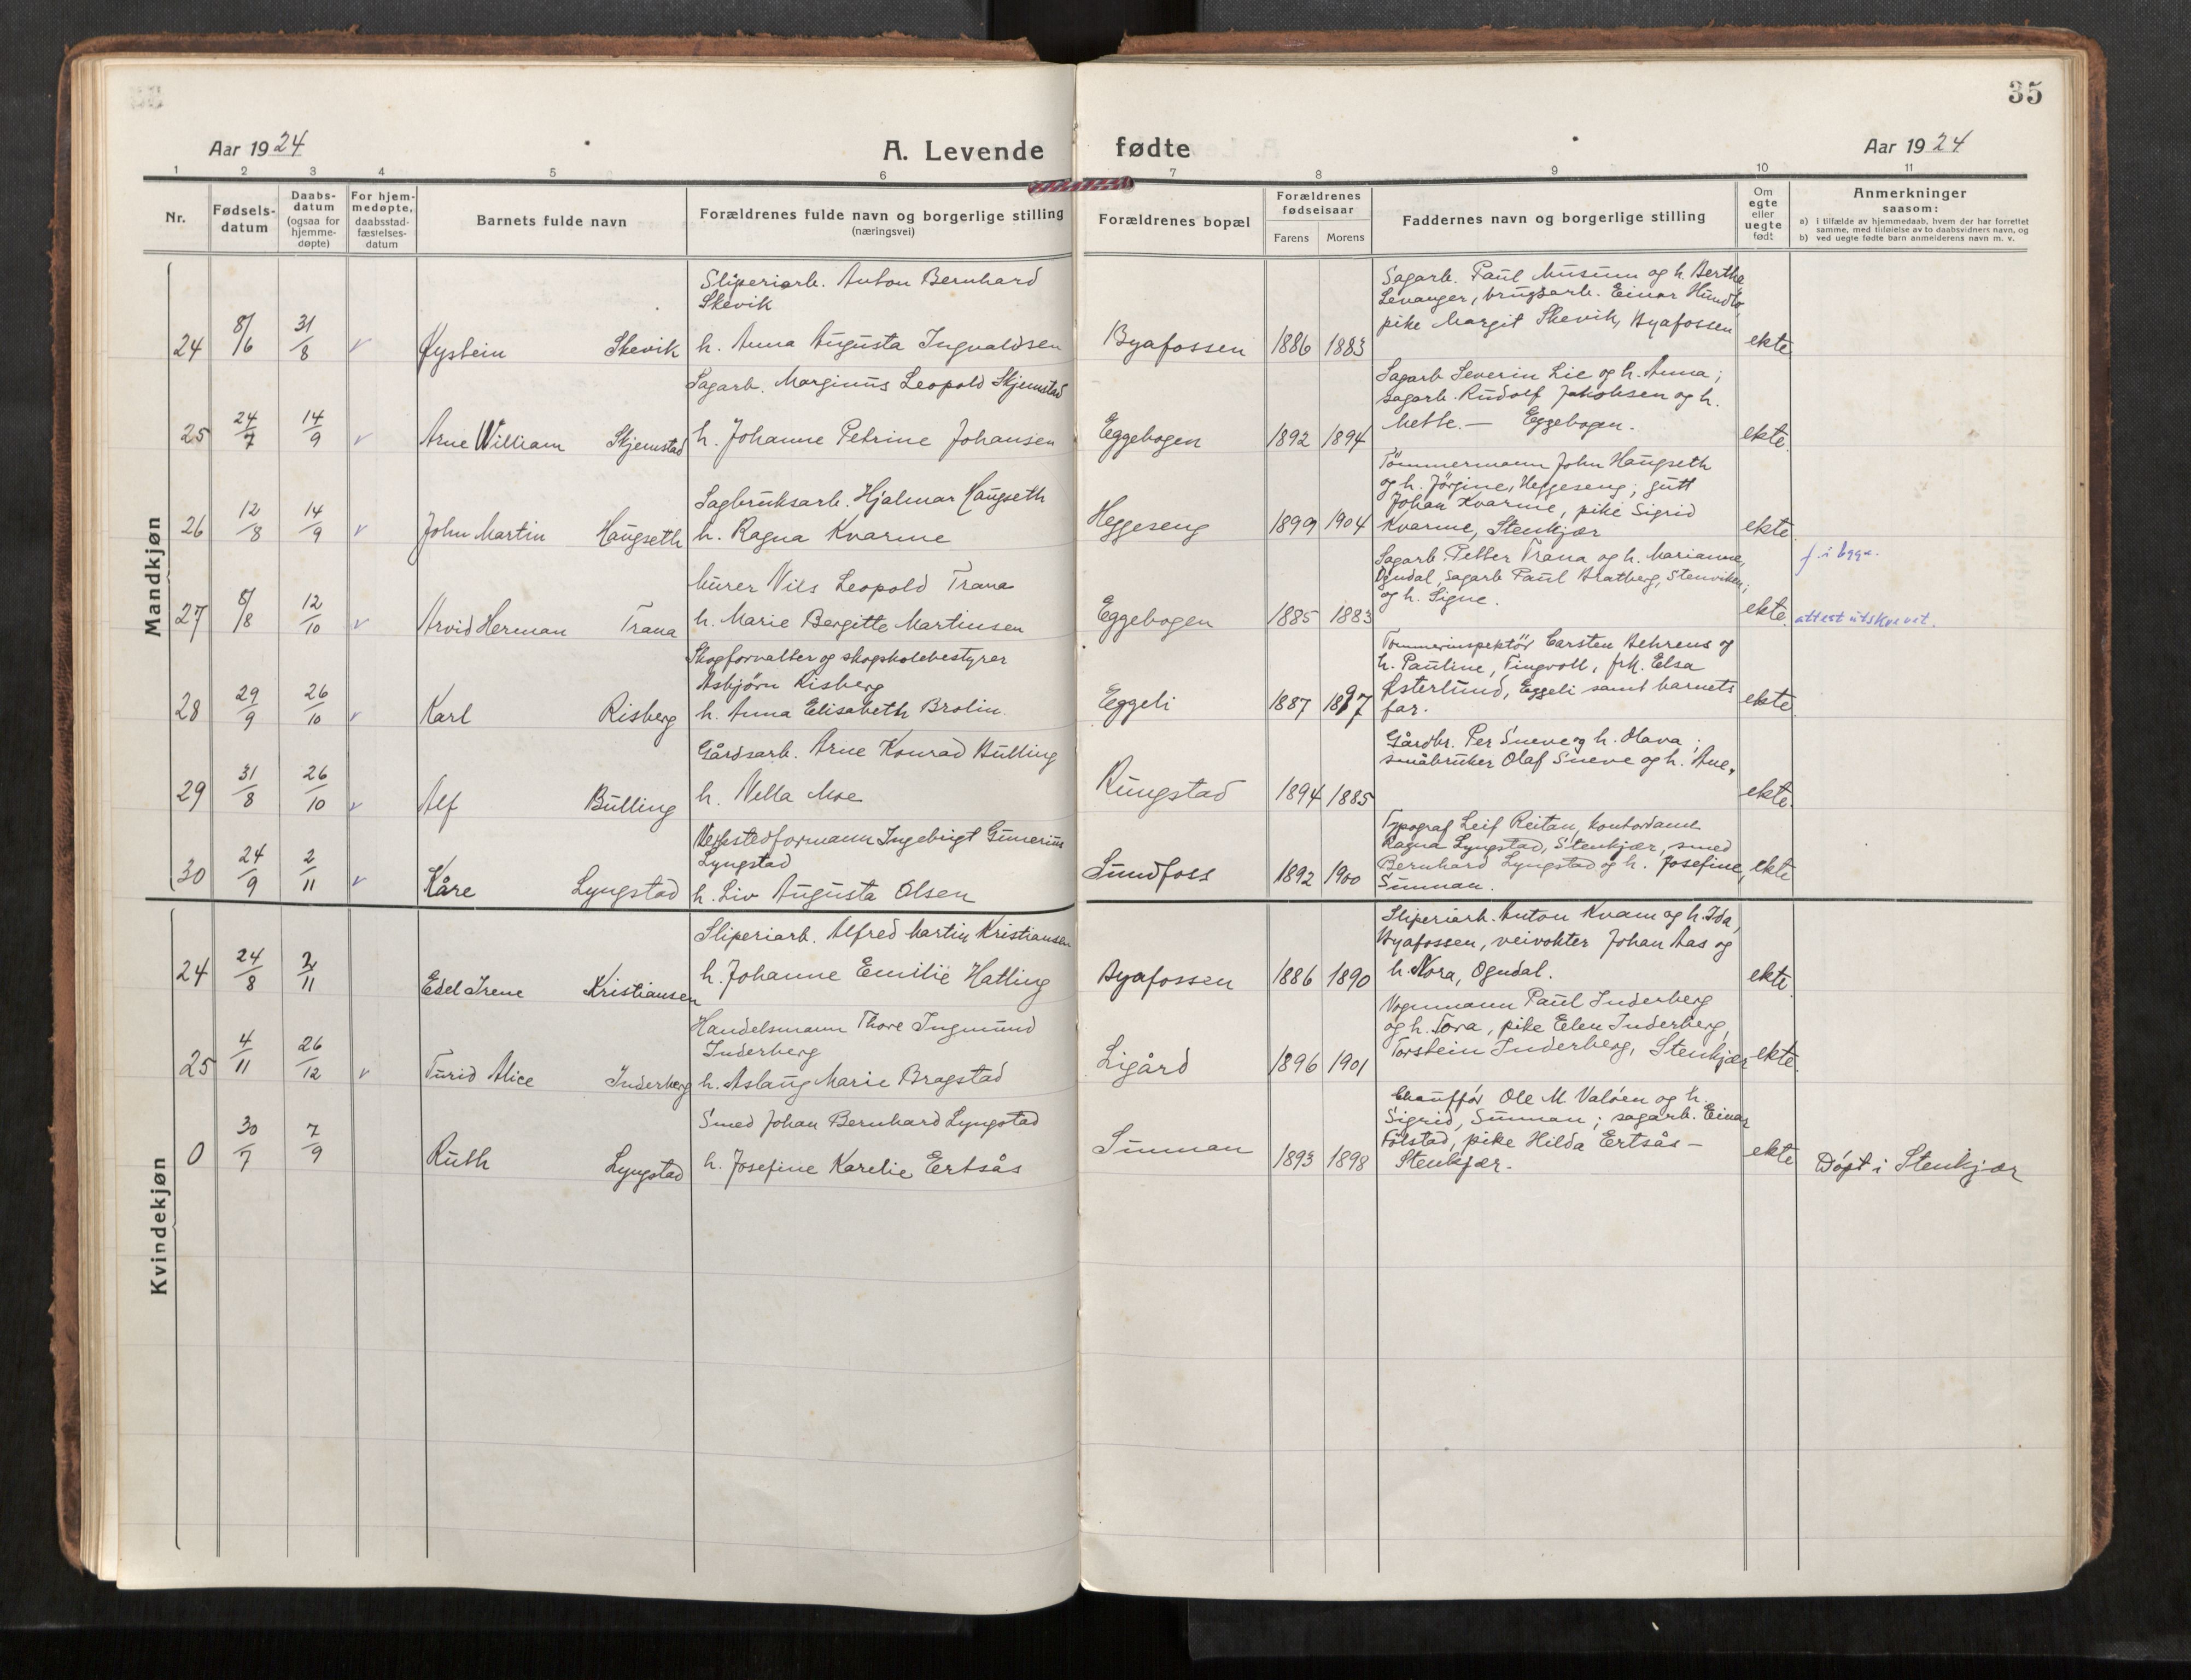 35
Aar 1924
A. Levende fødte
Aar 1924
1 2 3 4 5 6 7 8 9 10 11
Nr.
Fødsels-
datum
Daabs-
datum
(ogsaa for
hjemme-
døpte)
For hjem-
medøpte,
daabsstad-
fæstelses-
datum
Barnets fulde navn
Forældrenes fulde navn og borgerlige stilling
(næringsvei)
Forældrenes bopæl
Forældrenes
fødselsaar
Farens Morens
Faddernes navn og borgerlige stilling
Om
egte
eller
uegte
født
Anmerkninger
saasom:
a) i tilfælde av hjemmedaab, hvem der har forrettet
samme, med tilføielse av to daabsvidners navn, og
b) ved uegte fødte barn anmelderens navn m. v.
Mandkjøn
24 8/6 31/8 v Øystein Skevik
Sliperiarb. Anton Bernhard
Skevik
h. Anna Augusta Ingvaldsen
Byafossen 1886 1883
Sagarb. Paul Musum og h. Berthe
Levanger, brugsarb. Einar
pike Margit Skevik, Byafossen
ekte
25 24/7 14/9 v Arne William Skjemstad
Sagarb. Marginus Leopold Skjemstad
h. Johanne Petrine Johansen
Eggebogen 1892 1894
Sagarb Severin Lie og h. Anna;
sagarb. Rudolf Jakobsen og h.
Mette. — Eggebogen.
ekte.
26 12/8 14/9 v John Martin Haugseth
Sagbruksarb. Hjalmar Haugseth
h. Ragna Kvarme
Heggeseng 1899 1904
Tømmermann John Haugseth
og h. Jørgine, Heggeseng; gutt
Johan Kvarme, pike Sigrid
Kvarme, Stenkjær
ekte
27 8/8 12/10 v Arvid Herman Trana
Murer Nils Leopold Trana
h. Marie Bergitte Martinsen
Eggebogen 1885 1883
Sagarb. Petter Trana og h. Marianne,
Ogndal, sagarb Paul Bratberg, Stenviken;
og h. Signe.
ekte.
f. i Egge.
attest utskrevet.
28 29/9 26/10 v Karl Risberg
Skogforvalter og skogskolebestyrer
Asbjørn Risberg
h. Anna Elisabeth Brolin
Eggeli 1887 1897
Tømmerinspektør Carsten Behrens og
h. Pauline, Tingvoll, frk. Elsa
Østerlund, Eggeli samt barnets
far.
ekte
29 31/8 26/10 v Alf Bulling
Gårdsarb. Arne Konrad Bulling
h. Nella Moe
Rungstad 1894 1885
Gårdbr. Per Sneve og h. Olava;
småbruker Olaf Sneve og h. Ane.
ekte.
30 24/9 2/11 v Kåre Lyngstad
Verkstedformann Ingebrigt Gunerius
Lyngstad
h. Liv Augusta Olsen
Sundfoss 1892 1900
Typograf Leif Reitan, kontordame
Ragna Lyngstad, Stenkjær, smed
Bernhard Lyngstad og h. Josefine,
Sunnan.
ekte
Kvindekjøn
24 24/8 2/11 Edel Irene Kristiansen
Sliperiarb. Alfred Martin Kristiansen
h. Johanne Emilie Hatling
Byafossen 1886 1890
Sliperiarb. Anton Kvam og h. Ida,
Byafossen, veivokter Johan Aas og
h. Nora, Ogndal.
ekte.
25 4/11 26/12 v Turid Alice Inderberg
Handelsmann Thore Ingmund
Inderberg
h. Aslaug Marie Bragstad
Ligård 1896 1901
Vognmann Paul Inderberg
og h. Tora, pike Elen Inderberg,
Torstein Inderberg, Stenkjær
ekte.
0 30/7 7/9 Ruth Lyngstad
Smed Johan Bernhard Lyngstad
h. Josefine Karelie Eertsås
Sunnan 1893 1898
Chauffør Ole M. Valøen og h.
Sigrid, Sunnan; sagarb. Einar
Følstad, pike Hilda Ertsås —
Stenkjær.
ekte
Døpt i Stenkjær